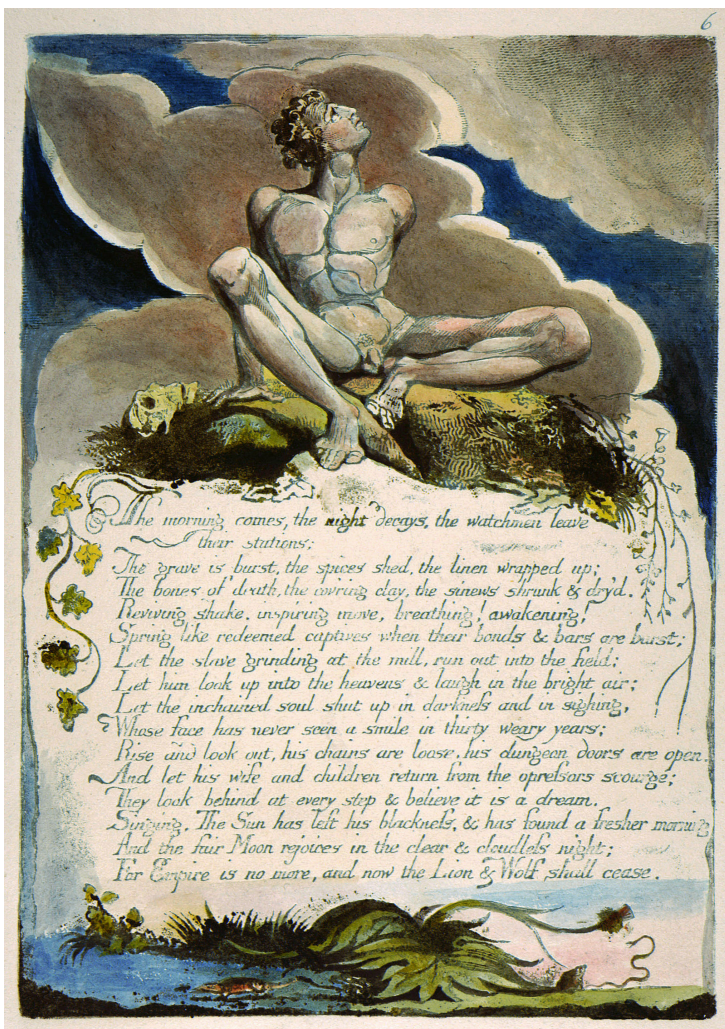 6
The morning comes, the night decays, the watchmen leave
their stations;
The grave is burst, the spices shed, the linen wrapped up;
The bones of death, the cov'ring clay, the sinews shrunk & dry'd.
Reviving shake, inspiring move, breathing! awakening!
Spring like redeemed captives when their bonds & bars are burst;
Let the slave grinding at the mill, run out into the field;
Let him look up into the heavens & laugh in the bright air;
Let the inchained soul shut up in darkness and in sighing,
Whose face has never seen a smile in thirty weary years;
Rise and look out, his chains are loose, his dungeon doors are open.
And let his wife and children return from the opressors scourge;
They look behind at every step & believe it is a dream.
Singing, The Sun has left his blackness, & has found a fresher morning
And the fair Moon rejoices in the clear & cloudless night;
For Empire is no more, and now the Lion & Wolf shall cease.